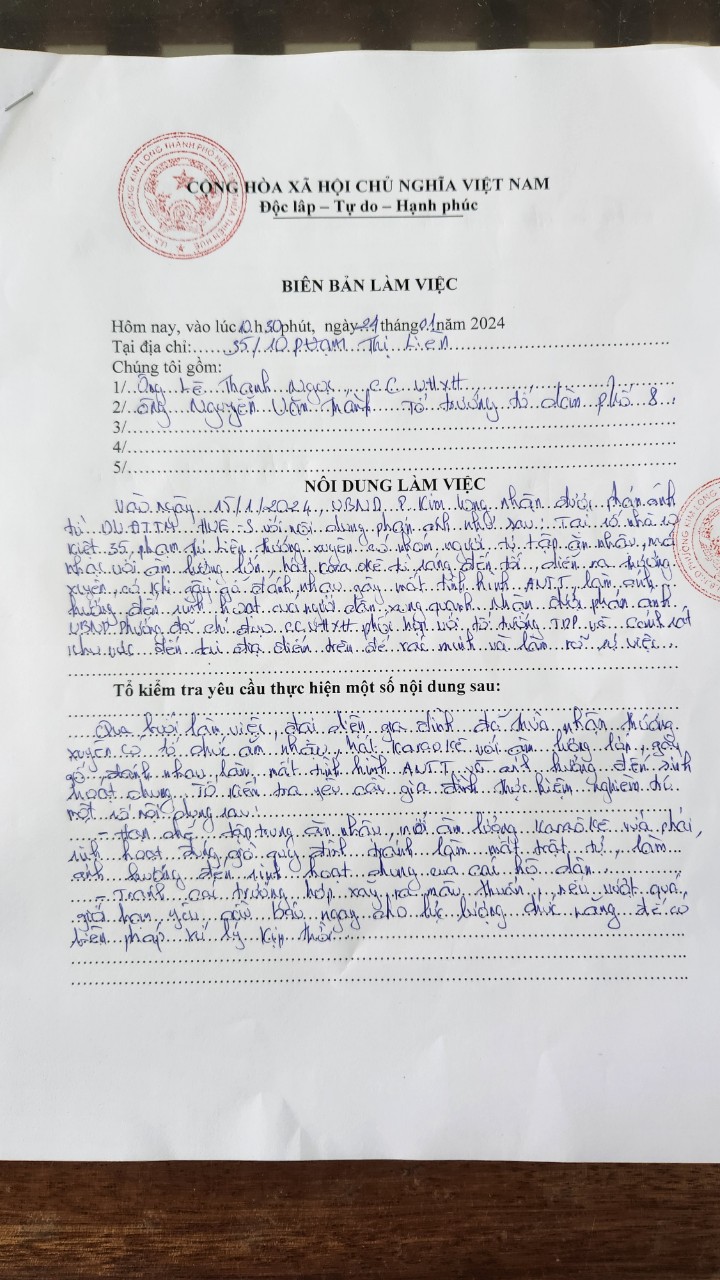 CỘNG HÒA XÃ HỘI CHỦ NGHĨA VIỆT NAM
Độc lập – Tự do – Hạnh phúc
BIÊN BẢN LÀM VIỆC
Hôm nay, vào lúc 10 h 30 phút, ngày 21 tháng 01 năm 2024
Tại địa chỉ: 35/10 PHẠM Thị Liên
Chúng tôi gồm:
1/ Ông Lê Thanh Ngọc, CC VHXH
2/ Ông Nguyễn Văn Thành Tổ trưởng tổ dân phố 8
3/
4/
5/
NÔI DUNG LÀM VIỆC
Vào ngày 15/1/2024, UBND P. Kim Long nhận được phản ánh
từ DVĐTTM HUE-S với nội dung phản ánh như sau: Tại số nhà 10
kiệt 35 phạm thị Liên thường xuyên có nhóm người tụ tập ăn nhậu, mở
nhạc với âm lượng lớn, hát karaoke từ sáng đến tối, diễn ra thường
xuyên, có khi gây gỗ đánh nhau gây mất tình hình ANTT, làm ảnh
hưởng đến sinh hoạt của người dân xung quanh. Nhận được phản ánh
UBND Phường đã chỉ đạo CC VHXH phối hợp với tổ trưởng TDP và cảnh sát
khu vực đến tại địa điểm trên để xác minh và làm rõ sự việc.
Tổ kiểm tra yêu cầu thực hiện một số nội dung sau:
Qua buổi làm việc, đại diện gia đình đã thừa nhận thường
xuyên có tổ chức ăn nhậu, hát karaoke với âm lượng lớn, gây
gỗ, đánh nhau, làm mất tình hình ANTT và ảnh hưởng đến sinh
hoạt chung. Tổ kiểm tra yêu cầu gia đình thực hiện nghiêm túc
một số nội dung sau:
- Hạn chế tập trung ăn nhậu, mở âm lượng karaoke vừa phải,
sinh hoạt đúng giờ quy định tránh làm mất trật tự, làm
ảnh hưởng đến sinh hoạt chung của các hộ dân.
- Tránh các trường hợp xảy ra mâu thuẫn, nếu vượt quá
giới hạn yêu cầu báo ngay cho lực lượng chức năng để có
biện pháp xử lý kịp thời.